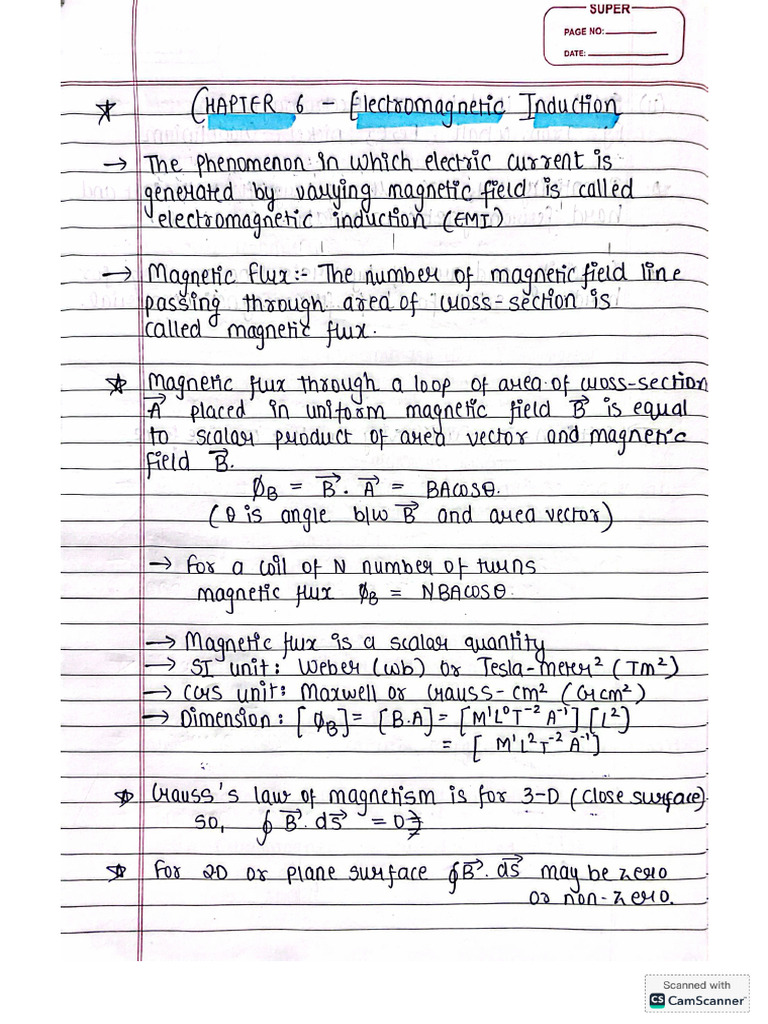 SUPER
PAGE NO:
DATE:
CHAPTER 6 - Electromagnetic Induction
→ The phenomenon in which electric current is
generated by varying magnetic field is called
electromagnetic induction (EMI)
→ Magnetic flux:- The number of magnetic field line
passing through area of cross-section is
called magnetic flux.
☆ Magnetic flux through a loop of area of cross-section
A⃗ placed in uniform magnetic field B⃗ is equal
to scalar product of area vector and magnetic
field B⃗.
∅B = B⃗. A⃗ = BAcosθ.
(θ is angle b/w B⃗ and area vector)
→ for a coil of N number of turns
magnetic flux ∅B = NBAcosθ.
→ Magnetic flux is a scalar quantity
→ SI unit: Weber (wb) or Tesla-meter² (Tm²)
→ CGS unit: Maxwell or Gauss-cm² (Gcm²)
→ Dimension: [∅B] = [B.A] = [M¹L⁰T⁻²A⁻¹][L²]
= [M¹L²T⁻²A⁻¹]
☆ Gauss's law of magnetism is for 3-D (close surface).
so, ∮ B⃗. ds⃗ = 0
☆ For 2D or plane surface ∮B⃗. ds⃗ may be zero
or non-zero.
Scanned with
CS CamScanner